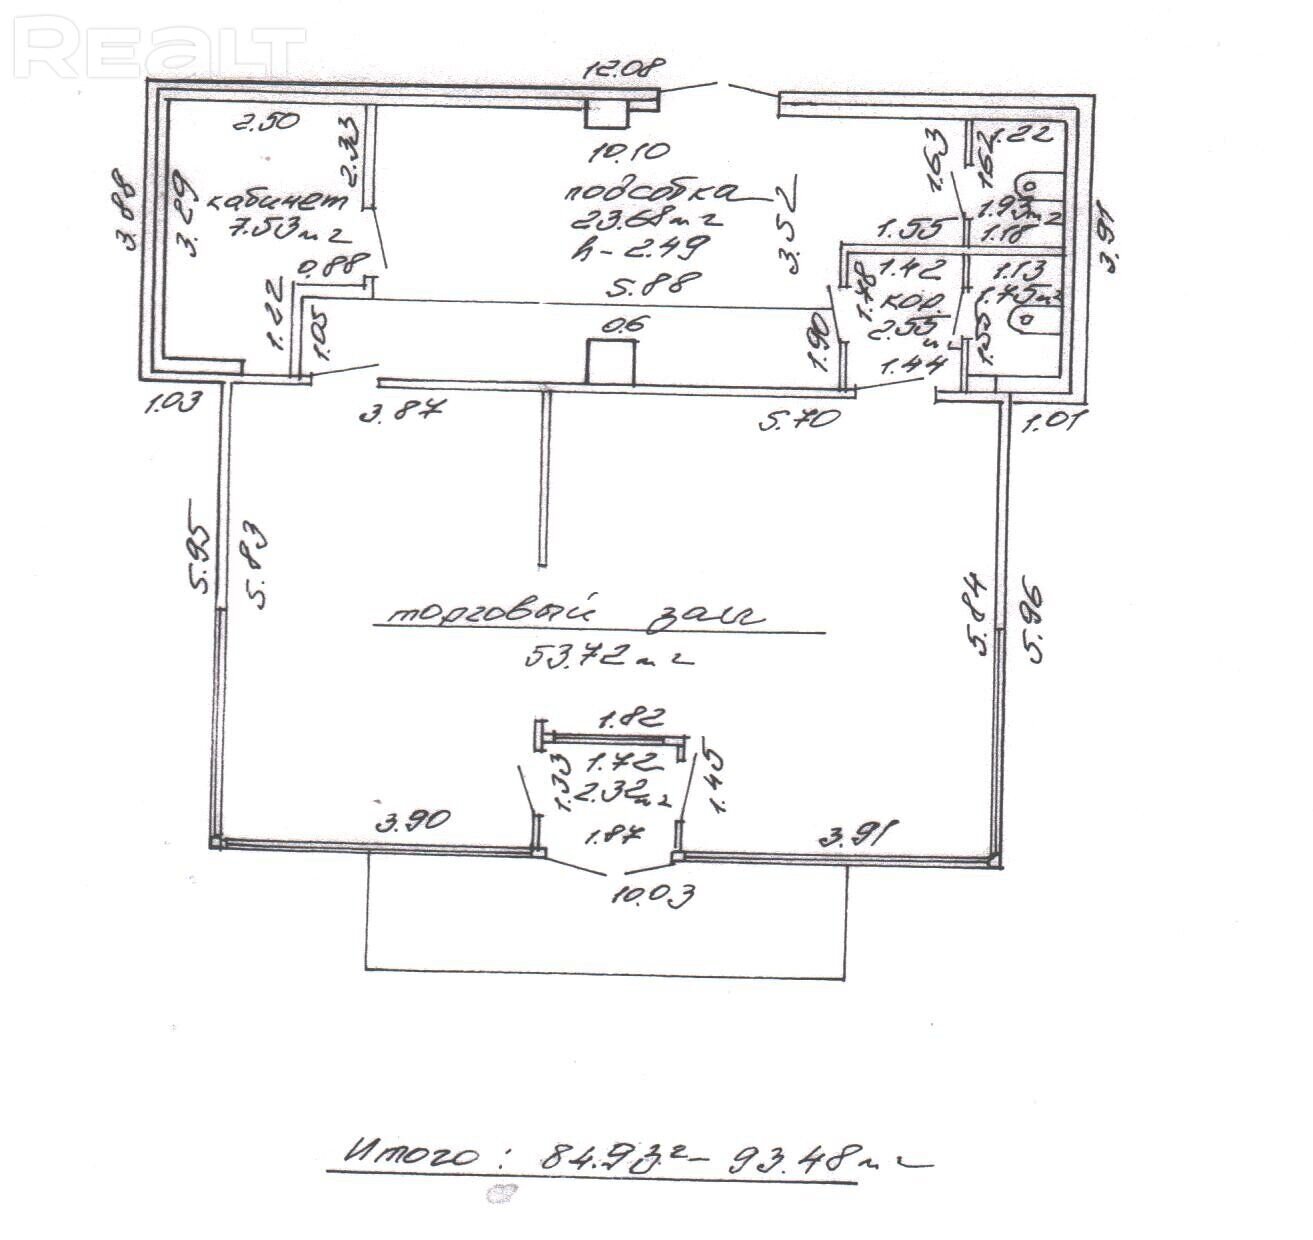 REALT
12.08
2.50
2.33
10.10
подсобка
23.68 м2
h - 2.49
3.52
1.63
1.62
1.22
1.93 м2
1.18
3.88
3.29
кабинет
7.53 м2
0.88
1.22
1.05
5.88
0.6
1.90
1.55
1.42
1.78
кор.
2.55 м2
1.44
1.13
1.75 м2
1.55
3.91
1.03
3.87
5.70
1.01
5.95
5.83
5.84
5.96
торговый зал
53.72 м2
1.82
1.72
2.32 м2
1.33
1.45
3.90
1.87
3.91
10.03
Итого: 84.93² - 93.48 м2